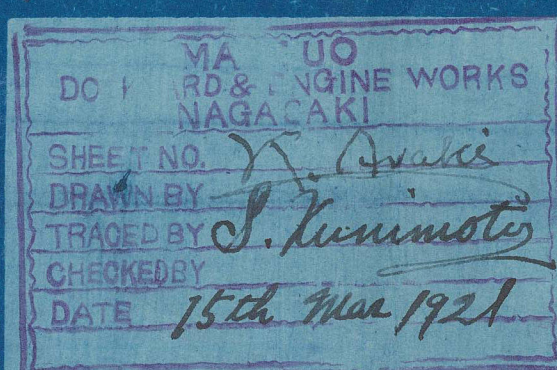 MA UO
DO RD & NGINE WORKS
NAGASAKI
SHEET NO.
N. Araki
DRAWN BY
TRACED BY S. Kunimoto
CHECKED BY
DATE 15th Mar 1921